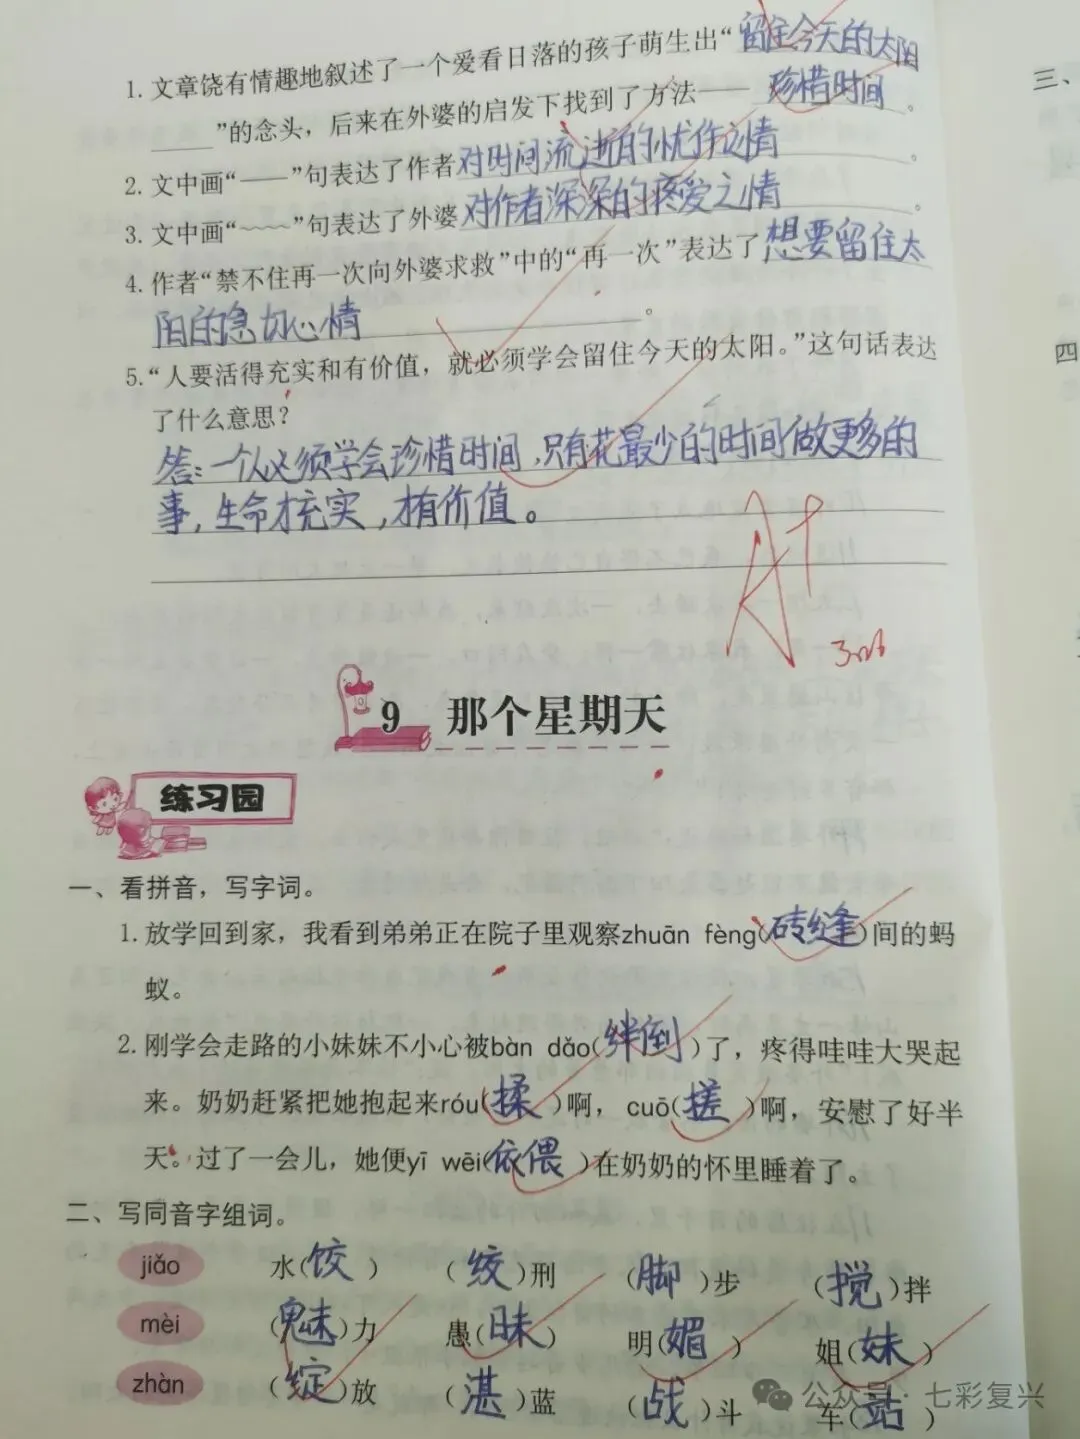 1. 文章饶有情趣地叙述了一个爱看日落的孩子萌生出“留住今天的太阳
”的念头，后来在外婆的启发下找到了方法——珍惜时间。
2. 文中画“——”句表达了作者对时间流逝的忧作之情。
3. 文中画“﹏﹏”句表达了外婆对作者深深的疼爱之情。
4. 作者“禁不住再一次向外婆求救”中的“再一次”表达了想要留住太
阳的急切心情。
5.“人要活得充实和有价值，就必须学会留住今天的太阳。”这句话表达
了什么意思？
答：一个人必须学会珍惜时间，只有花最少的时间做更多的
事，生命才充实，才有价值。
A+
三、
四
9 那个星期天
练习园
一、看拼音，写字词。
1. 放学回到家，我看到弟弟正在院子里观察zhuān fèng(砖缝)间的蚂
蚁。
2. 刚学会走路的小妹妹不小心被bàn dǎo(绊倒)了，疼得哇哇大哭起
来。奶奶赶紧把她抱起来róu(揉)啊，cuō(搓)啊，安慰了好半
天。过了一会儿，她便yī wēi(依偎)在奶奶的怀里睡着了。
二、写同音字组词。
jiǎo 水(饺) (绞)刑 (脚)步 (搅)拌
mèi (魅)力 愚(昧) 明(媚) 姐(妹)
zhàn (绽)放 (湛)蓝 (战)斗 车(站)
公众号·七彩复兴